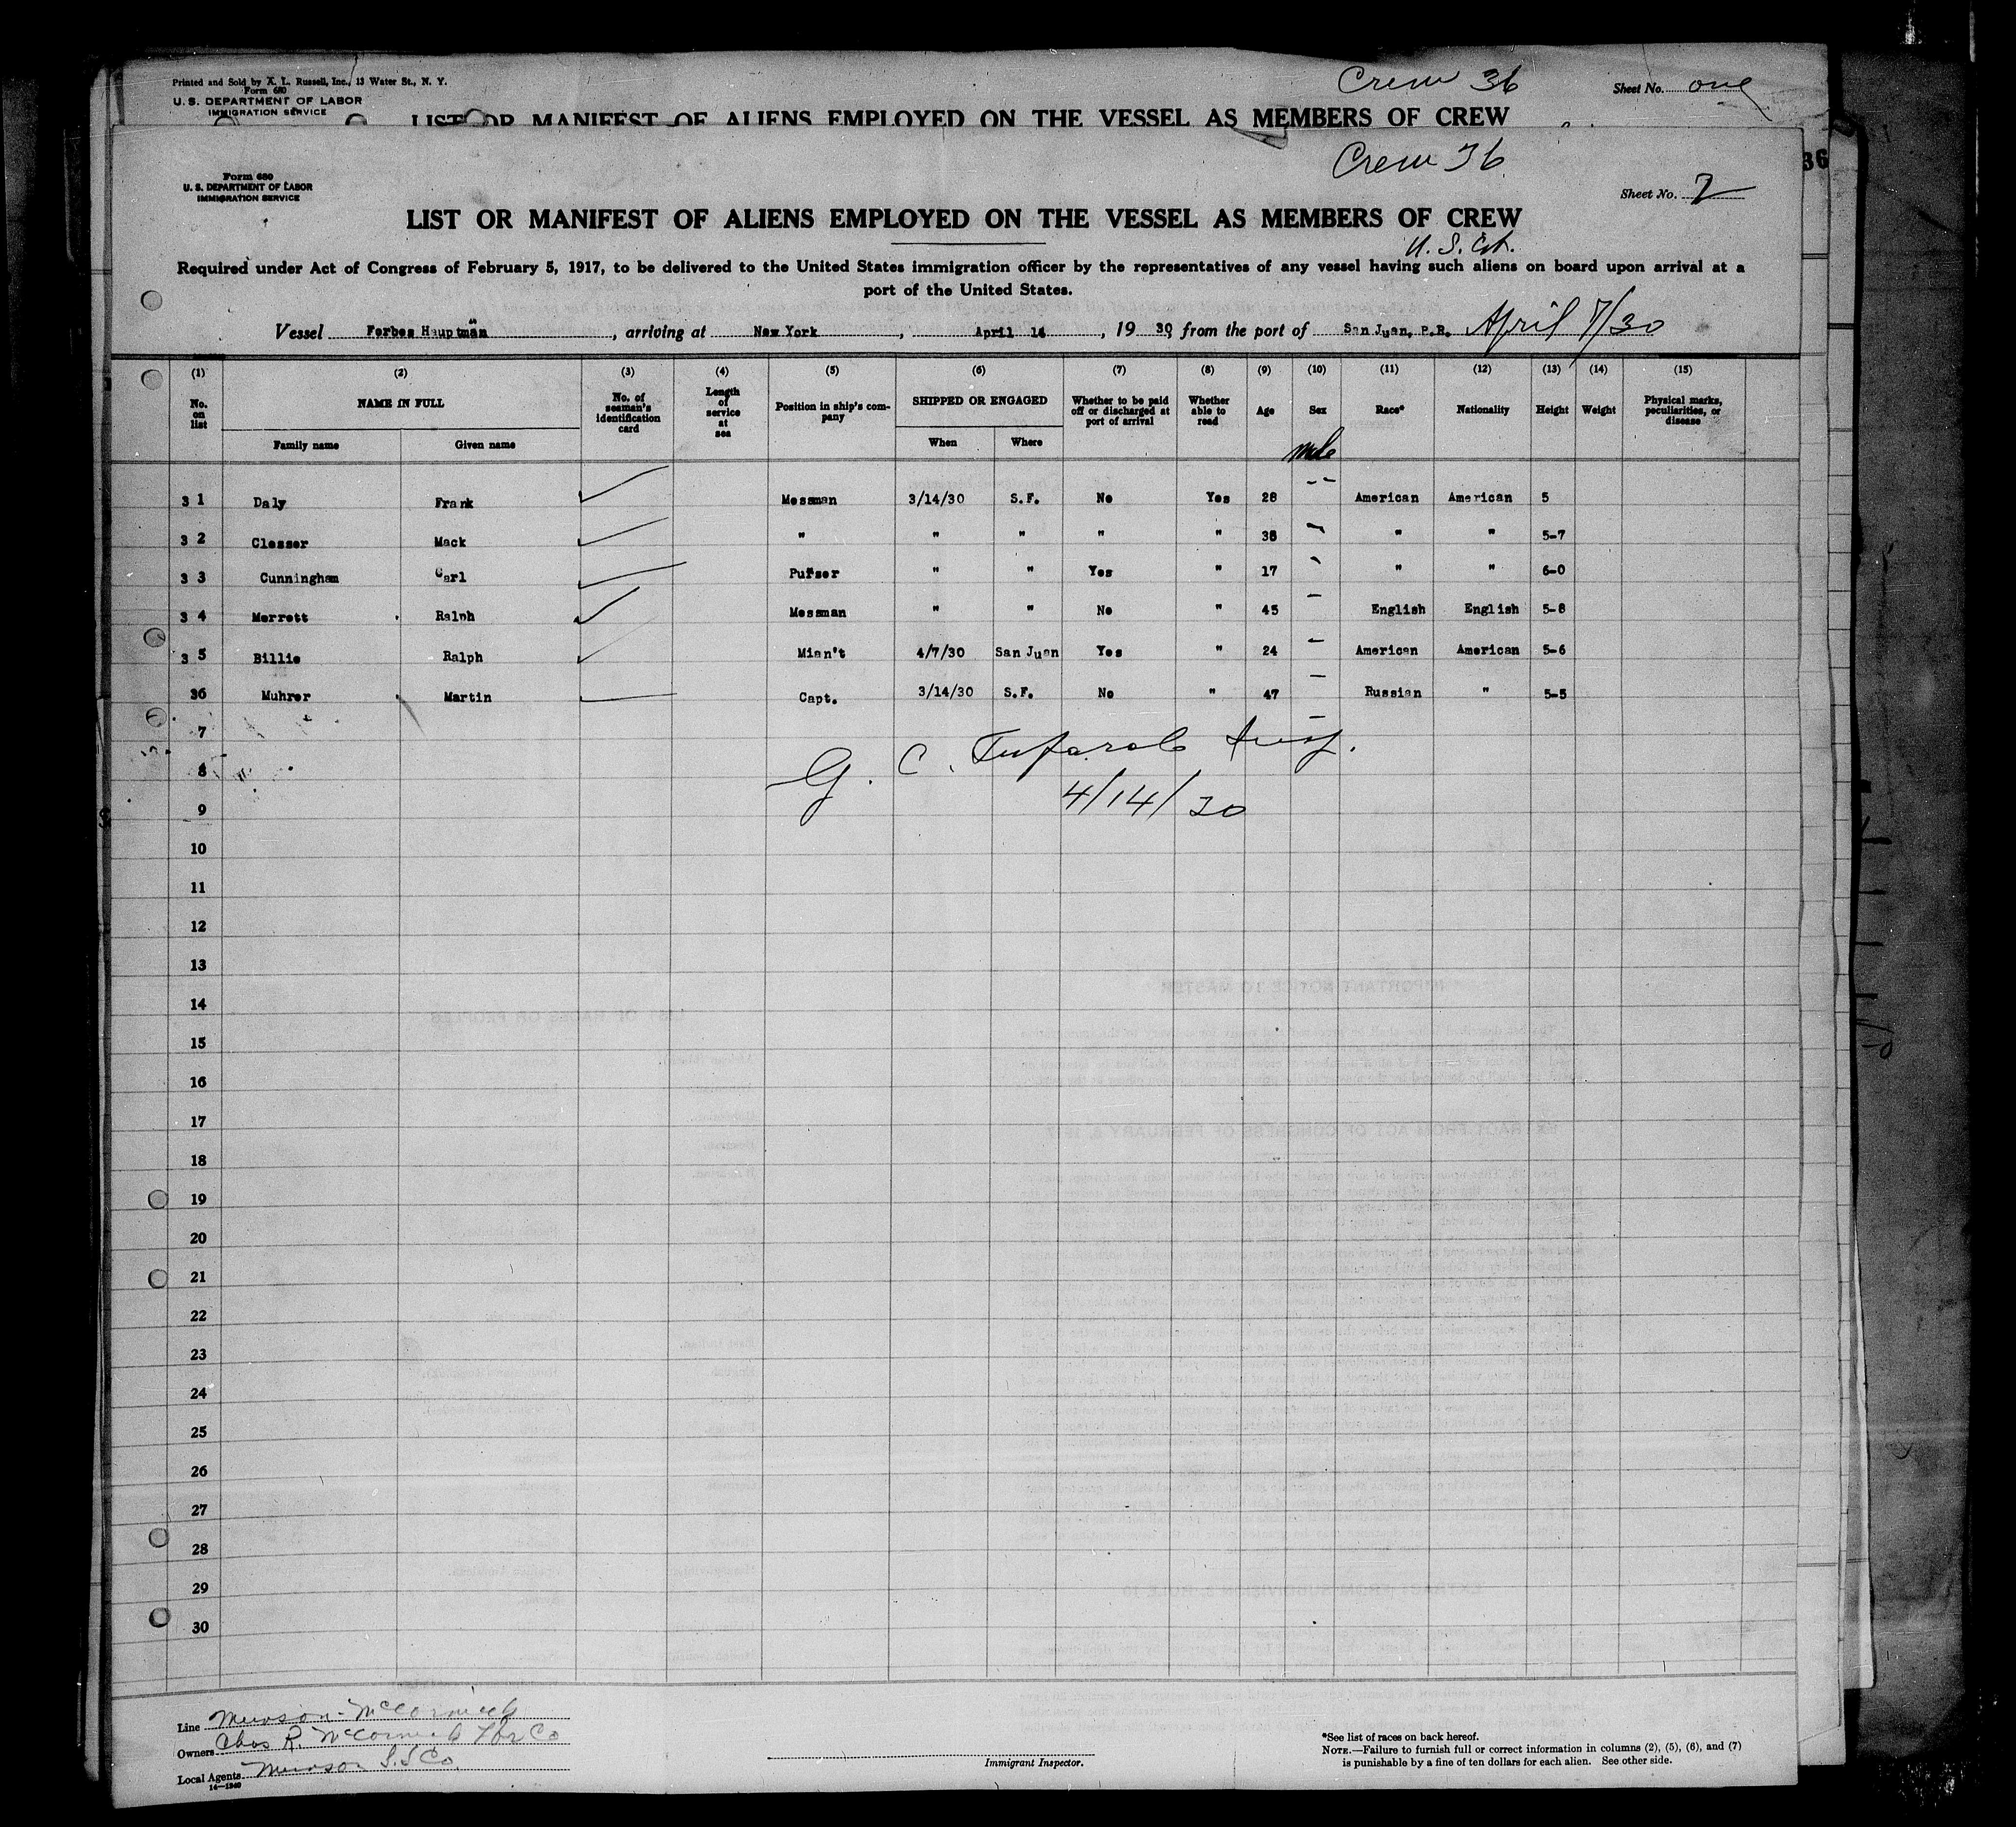 Printed and Sold by A. L. Russell, Inc., 13 Water St., N. Y.
Form 680
U. S. DEPARTMENT OF LABOR
IMMIGRATION SERVICE
Crew 36
Sheet No. one
LIST OR MANIFEST OF ALIENS EMPLOYED ON THE VESSEL AS MEMBERS OF CREW
Crew 36
36
Form 680
U. S. DEPARTMENT OF LABOR
IMMIGRATION SERVICE
Sheet No. 2
LIST OR MANIFEST OF ALIENS EMPLOYED ON THE VESSEL AS MEMBERS OF CREW
Required under Act of Congress of February 5, 1917, to be delivered to the United States immigration officer by the representatives of any vessel having such aliens on board upon arrival at a
port of the United States.
Vessel Forbes Hauptman, arriving at New York, April 14, 1930 from the port of San Juan, P.R. April 7/30
(1) (2) (3) (4) (5) (6) (7) (8) (9) (10) (11) (12) (13) (14) (15)
No. on list NAME IN FULL No. of seaman's identification card Length of service at sea Position in ship's company SHIPPED OR ENGAGED Whether to be paid off or discharged at port of arrival Whether able to read Age Sex Race* Nationality Height Weight Physical marks, peculiarities, or disease
Family name Given name When Where
male
31 Daly Frank Messman 3/14/30 S.F. No Yes 28 American American 5
32 Clesser Mack " " " " " 38 " " 5-7
33 Cunningham Carl Purser " " Yes " 17 " " 6-0
34 Merrett Ralph Messman " " No " 45 English English 5-8
35 Billie Ralph Mian't 4/7/30 San Juan Yes " 24 American American 5-6
36 Muhrer Martin Capt. 3/14/30 S.F. No " 47 Russian " 5-5
7
8 G. C.
9 4/14/30
10
11
12
13
14
15
16
17
18
19
20
21
22
23
24
25
26
27
28
29
30
Line Munson-McCormick
Owners Chas R. McCormick Lbr Co
Local Agents Munson S.S Co.
14—1240
Immigrant Inspector.
*See list of races on back hereof.
NOTE.—Failure to furnish full or correct information in columns (2), (5), (6), and (7)
is punishable by a fine of ten dollars for each alien. See other side.